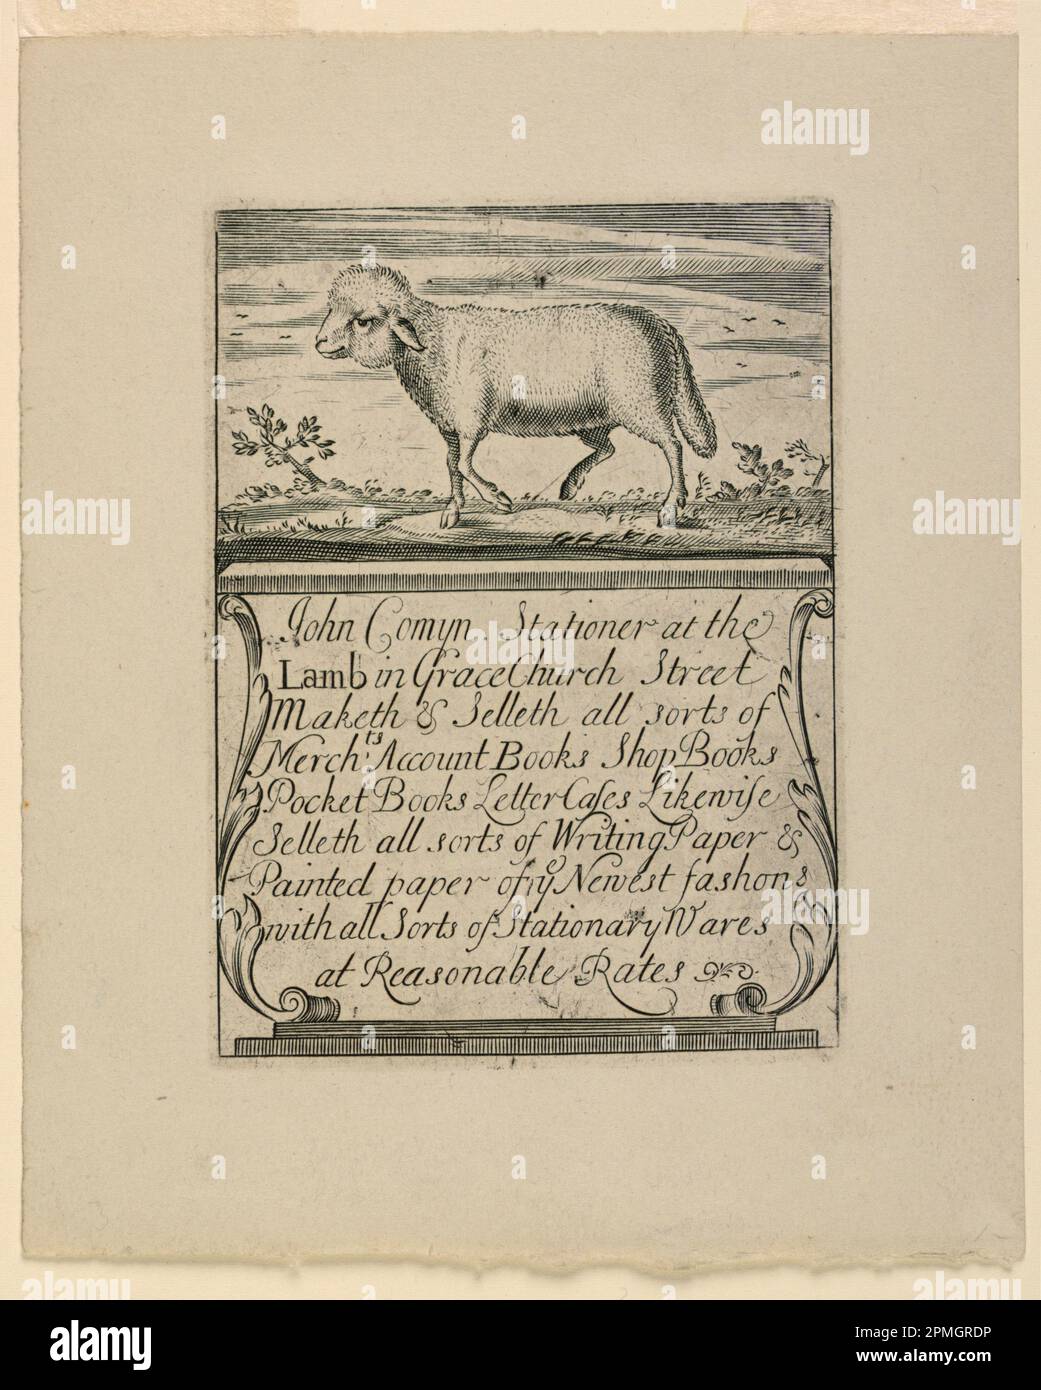 John Comyn Stationer at the
Lamb in GraceChurch Street
Maketh & Selleth all sorts of
Merch.ts Account Books Shop Books
Pocket Books Letter Caſes Likewiſe
Selleth all sorts of Writing Paper &
Painted paper of yͤ Newest fashons
with all Sorts of Stationary Wares
at Reasonable Rates
a
a
alamy
a
a
a
alamy
alamy
a
alamy
a
a
a
alamy
a
a
alamy
Image ID: 2PMGRDP
www.alamy.com